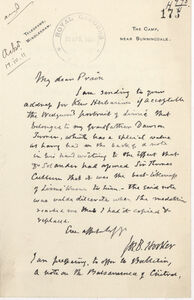 and
Ackd.
19.10.11
TELEGRAMS,
WINDLESHAM.
ROYAL GARDENS
THE CAMP,
NEAR SUNNINGDALE.
My dear Prain
I am sending to your
address for Kew Herbarium if acceptable
the Wedgwood portrait of Linné that
belonged to my grandfather Dawson
Turner, which has a special value
as having on the back, a note
in his hand writing to the effect that
Dr Solander had informed Sir Thomas
Cullum that it was the best likeness
of Linné known to him — the said note
was rather obliterate when the medallion
reached me that I had it copied &
replaced.
J. D. Hooker
I am preparing to offer to Bulletin,
a note on the Balsamineae of Chitral,